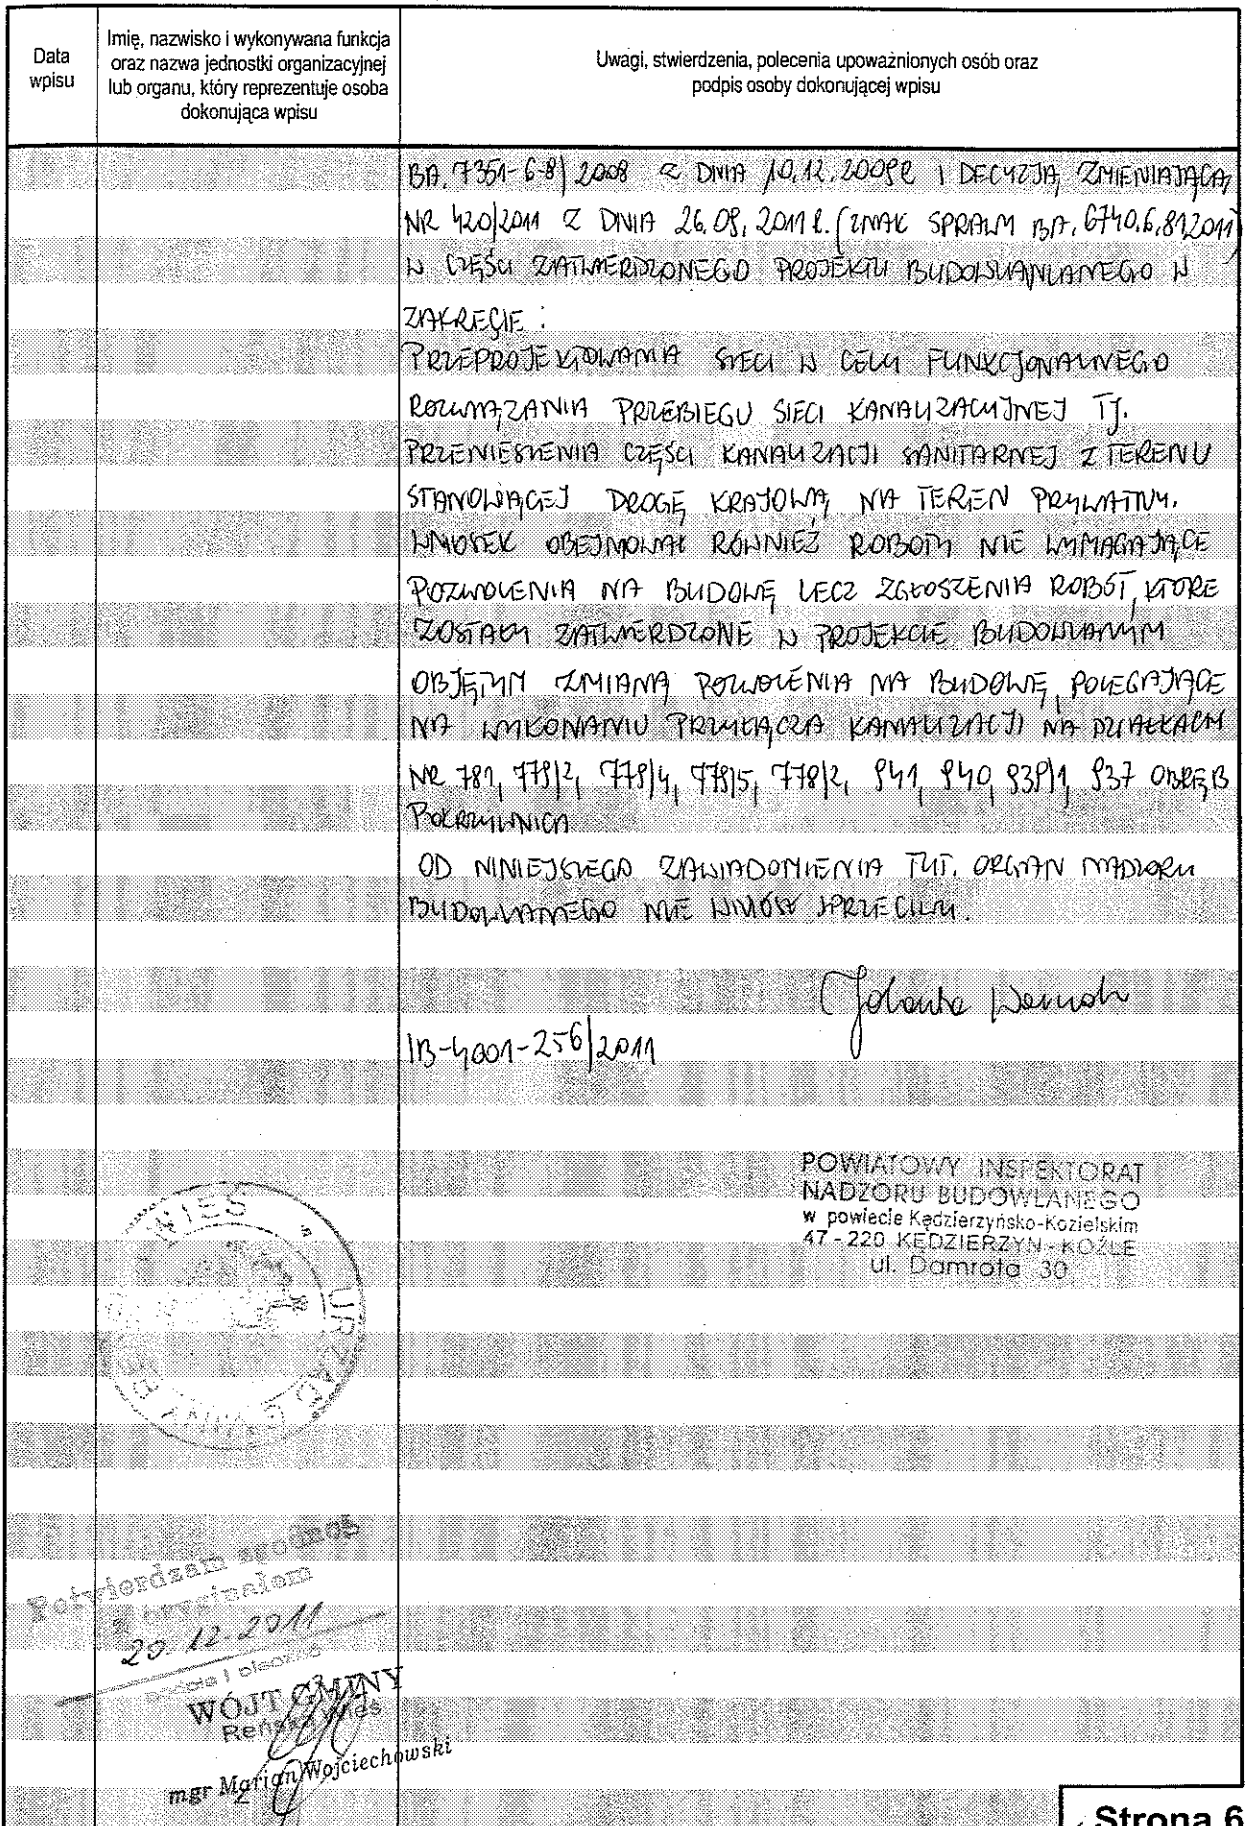 Data
wpisu
Imię, nazwisko i wykonywana funkcja
oraz nazwa jednostki organizacyjnej
lub organu, który reprezentuje osoba
dokonująca wpisu
Uwagi, stwierdzenia, polecenia upoważnionych osób oraz
podpis osoby dokonującej wpisu
BA. 7351-6-8/2008 Z DNIA 10.12.2009R I DECYZJĄ ZMIENIAJĄCĄ
NR 420/2011 Z DNIA 26.09.2011R. (ZNAK SPRAWY BA.6740.6.8.2011)
W CZĘŚCI ZATWIERDZONEGO PROJEKTU BUDOWLANEGO W
ZAKRESIE :
PRZEPROJEKTOWANIA SIECI W CELU FUNKCJONALNEGO
ROZWIĄZANIA PRZEBIEGU SIECI KANALIZACYJNEJ TJ.
PRZENIESIENIA CZĘŚCI KANALIZACJI SANITARNEJ Z TERENU
STANOWIĄCEJ DROGĘ KRAJOWĄ NA TEREN PRYWATNY.
WNIOSEK OBEJMOWAŁ RÓWNIEŻ ROBOTY NIE WYMAGAJĄCE
POZWOLENIA NA BUDOWĘ LECZ ZGŁOSZENIA ROBÓT, KTÓRE
ZOSTAŁY ZATWIERDZONE W PROJEKCIE BUDOWLANYM
OBJĘTYM ZMIANĄ POZWOLENIA NA BUDOWĘ, POLEGAJĄCE
NA WYKONANIU PRZYŁĄCZA KANALIZACJI NA DZIAŁKACH
NR 781, 779/2, 779/4, 779/5, 778/2, 941, 940, 939/1, 937 OBRĘB
POKRZYWNICA
OD NINIEJSZEGO ZAWIADOMIENIA TUT. ORGAN NADZORU
BUDOWLANEGO NIE WNIÓSŁ SPRZECIWU.
Jolanta
IB-4001-256/2011
POWIATOWY INSPEKTORAT
NADZORU BUDOWLANEGO
w powiecie Kędzierzyńsko-Kozielskim
47-220 KĘDZIERZYN-KOŹLE
ul. Damrota 30
WIEŚ * URZĄD GMINY
Potwierdzam zgodność
z oryginałem
20.12.2011
WÓJT GMINY
Reńska Wieś
mgr Marian Wojciechowski
Strona 6